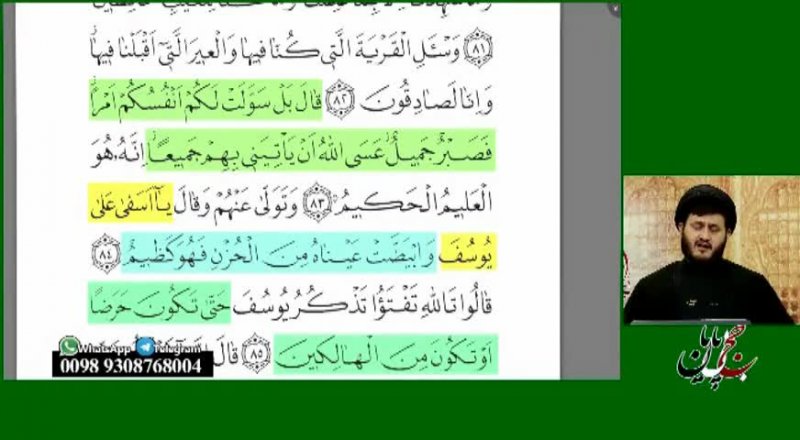 ﴿٨١﴾ وَسْئَلِ الْقَرْيَةَ الَّتي كُنَّا فيها وَالْعيرَ الَّتي اَقْبَلْنا فيها
وَاِنَّا لَصادِقُونَ ﴿٨٢﴾ قالَ بَلْ سَوَّلَتْ لَكُمْ اَنْفُسُكُمْ اَمْرًا
فَصَبْرٌ جَميلٌ عَسَى اللّٰهُ اَنْ يَأْتِيَني بِهِمْ جَميعًا اِنَّهُ هُوَ
الْعَليمُ الْحَكيمُ ﴿٨٣﴾ وَتَوَلّى عَنْهُمْ وَقالَ يا اَسَفى عَلى
يُوسُفَ وَابْيَضَّتْ عَيْناهُ مِنَ الْحُزْنِ فَهُوَ كَظيمٌ ﴿٨٤﴾
قالُوا تَاللّٰهِ تَفْتَؤُا تَذْكُرُ يُوسُفَ حَتّى تَكُونَ حَرَضًا
اَوْ تَكُونَ مِنَ الْهالِكينَ ﴿٨٥﴾ قالَ
WhatsApp Telegram
0098 9308768004